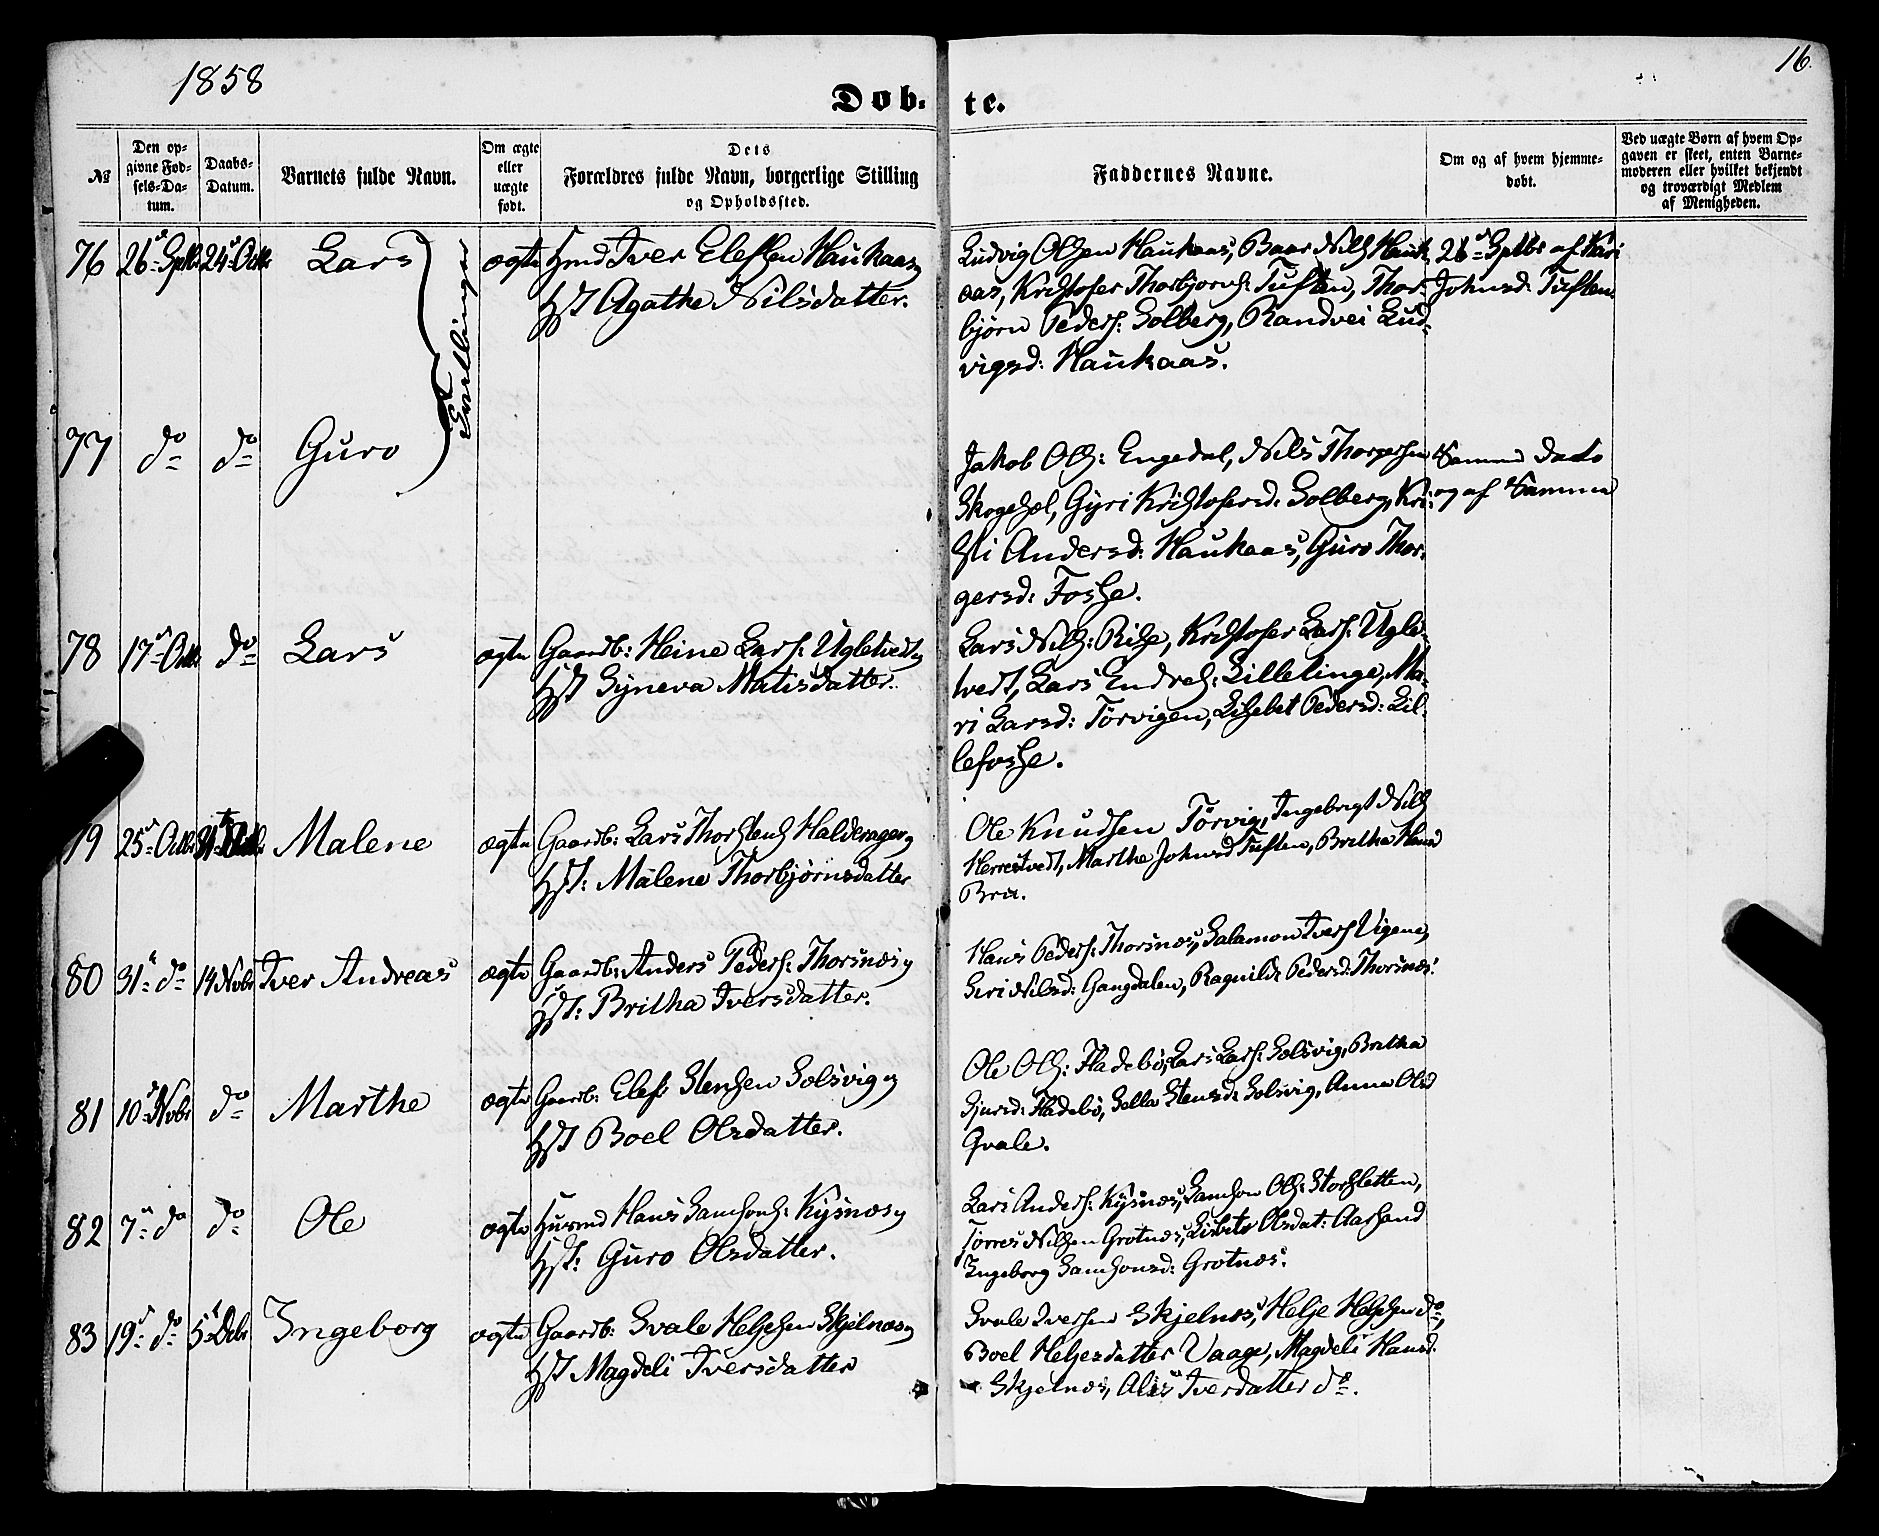 1858
16.
Døb- te.
№
Den op-
givne Fød-
sels-Da-
tum.
Daabs-
Datum.
Barnets fulde Navn.
Om ægte
eller
uægte
født.
Dets
Forældres fulde Navn, borgerlige Stilling
og Opholdssted.
Faddernes Navne.
Om og af hvem hjemme-
døbt.
Ved uægte Børn af hvem Op-
gaven er skeet, enten Barne-
moderen eller hvilket bekjendt
og troværdigt Medlem
af Menigheden.
76 26 Sptbr 24 Octbr Lars ægte Hmd Iver Elefsen Haukaas og
Hst Agathe Nilsdatter.
Ludvig Olsen Haukaas, Baar Nils: Hauk-
aas, Kristofer Thorbjorns: Tuften, Thor-
bjørn Peders: Solberg, Randvei Lud-
vigsd: Haukaas.
26 Sptbr af Kari
Johnsd: Tuften
Tvillinger
77 do do Guro
Jakob Ols: Engedal, Nils Thorgersen
Skogesæl, Gyri Kristofersd: Solberg, Kri-
sti Andersd: Haukaas, Guro Thor-
gersd: Fosse.
Samme Dato
og af Samme
78 17 Octbr do Lars ægte Gaardb: Heine Lars: Ugletvedt og
Hst Syneva Matisdatter.
Lars Nils: Rise, Kristofer Lars: Ugle-
tvedt, Lars Endres: Lilletinge, Ma-
ri Larsd: Tørvigen, Lisebet Pedersd: Lil-
lefosse.
79 25 Octbr 31 Octbr Malene ægte Gaardb: Lars Thorstens Halderager og
Hst: Malene Thorbjørnsdatter
Ole Knudsen Tørvig, Ingebrigt Nils
Herrestvedt, Marthe Johnsd Tuften, Britha Hansd
Bru.
80 31 do 14 Nobr Iver Andreas ægte Gaardb: Anders Peders: Thorsnæs og
Hst: Britha Iversdatter.
Hans Peders: Thorsnæs, Salamon Ivers Vigene,
Siri Nilsd: Gangdalen, Ragnilde Pedersd: Thorsnæs.
81 10 Nobr do Marthe ægte Gaardb: Elef: Stensen Solsvig og
Hst Boel Olsdatter.
Ole Ols: Fladebø, Lars Lars: Solsvig, Britha
Sjursd: Fladebø, Sella Stensd: Solsvig, Anna Olsd
Qvale.
82 7 do do Ole ægte Husmd Hans Samsons: Kysnæs og
Hst: Guro Olsdatter.
Lars Anders: Kysnæs, Samson Ols: Storsletten,
Torres Nilsen Grotnæs, Lisbeto Olsdat: Aarsand
Ingeborg Samsonsd: Grotnæs.
83 19 do 5 Debr Ingeborg ægte Gaardb: Svale Helgesen Skjelnæs og
Hst Magdeli Iversdatter
Svale Iversen Skjelnæs, Helje Heljesen do,
Boel Heljesdatter Vaage, Magdeli Hansd.
Skjelnæs, Alis Iversdatter do.